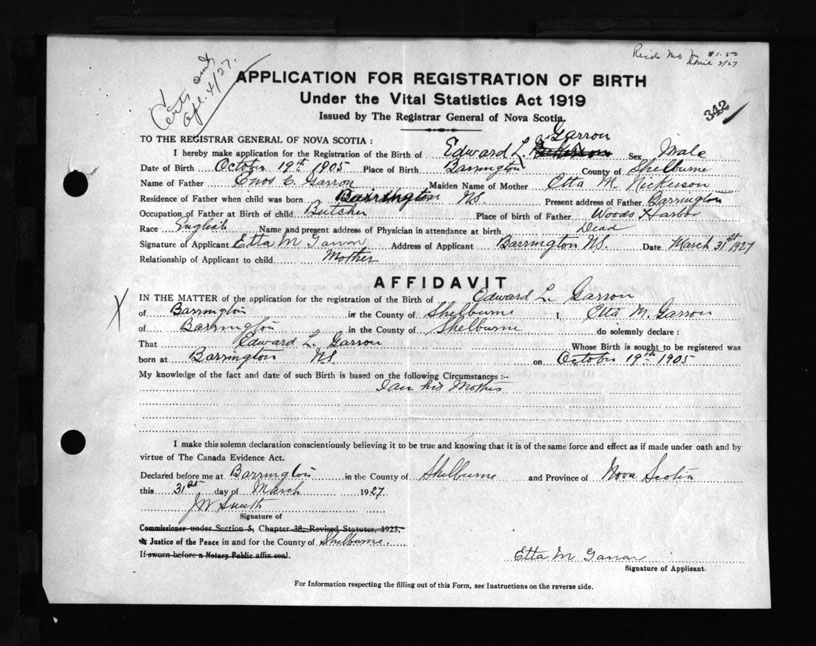 Certs out
Apl. 4/27.
$1.50
APPLICATION FOR REGISTRATION OF BIRTH
Under the Vital Statistics Act 1919
Issued by The Registrar General of Nova Scotia.
342
TO THE REGISTRAR GENERAL OF NOVA SCOTIA :
I hereby make application for the Registration of the Birth of Edward L. Garron Sex Male
Date of Birth October 19th 1905 Place of Birth Barrington County of Shelburne
Name of Father Enos C. Garron Maiden Name of Mother Etta M. Nickerson
Residence of Father when child was born Barrington NS. Present address of Father Barrington
Occupation of Father at Birth of child Butcher Place of birth of Father Woods Harbor
Race English Name and present address of Physician in attendance at birth Dead
Signature of Applicant Etta M Garron Address of Applicant Barrington NS. Date March 31st 1927
Relationship of Applicant to child Mother
AFFIDAVIT
X
IN THE MATTER of the application for the registration of the Birth of Edward L. Garron
of Barrington in the County of Shelburne I, Etta M. Garron
of Barrington in the County of Shelburne do solemnly declare :
That Edward L. Garron Whose Birth is sought to be registered was
born at Barrington NS. on October 19th 1905
My knowledge of the fact and date of such Birth is based on the following Circumstances :-
I am his Mother
I make this solemn declaration conscientiously believing it to be true and knowing that it is of the same force and effect as if made under oath and by
virtue of The Canada Evidence Act.
Declared before me at Barrington in the County of Shelburne and Province of Nova Scotia
this 31st day of March 1927
J W Smith
Signature of
Commissioner under Section 5, Chapter 38, Revised Statutes, 1923.
a Justice of the Peace in and for the County of Shelburne.
If sworn before a Notary Public affix seal.
Etta M Garron
Signature of Applicant.
For Information respecting the filling out of this Form, see Instructions on the reverse side.